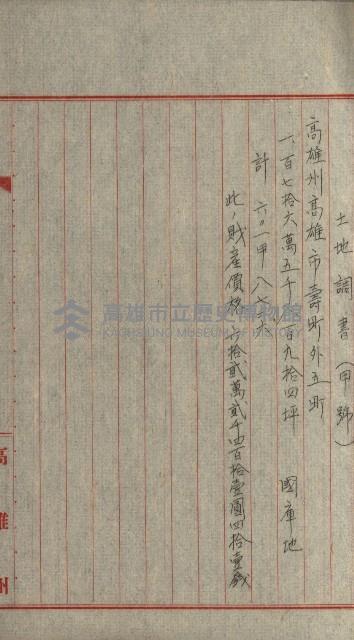 土地調書(甲號)
高雄州高雄市壽町外五町
一、百七拾六萬五千 百九拾四坪 國庫地
計 六〇一甲八七六
此ノ財產價格六拾貳萬貳千四百拾壹圓四拾壹錢
高雄市立歷史博物館
KAOHSIUNG MUSEUM OF HISTORY
高雄州